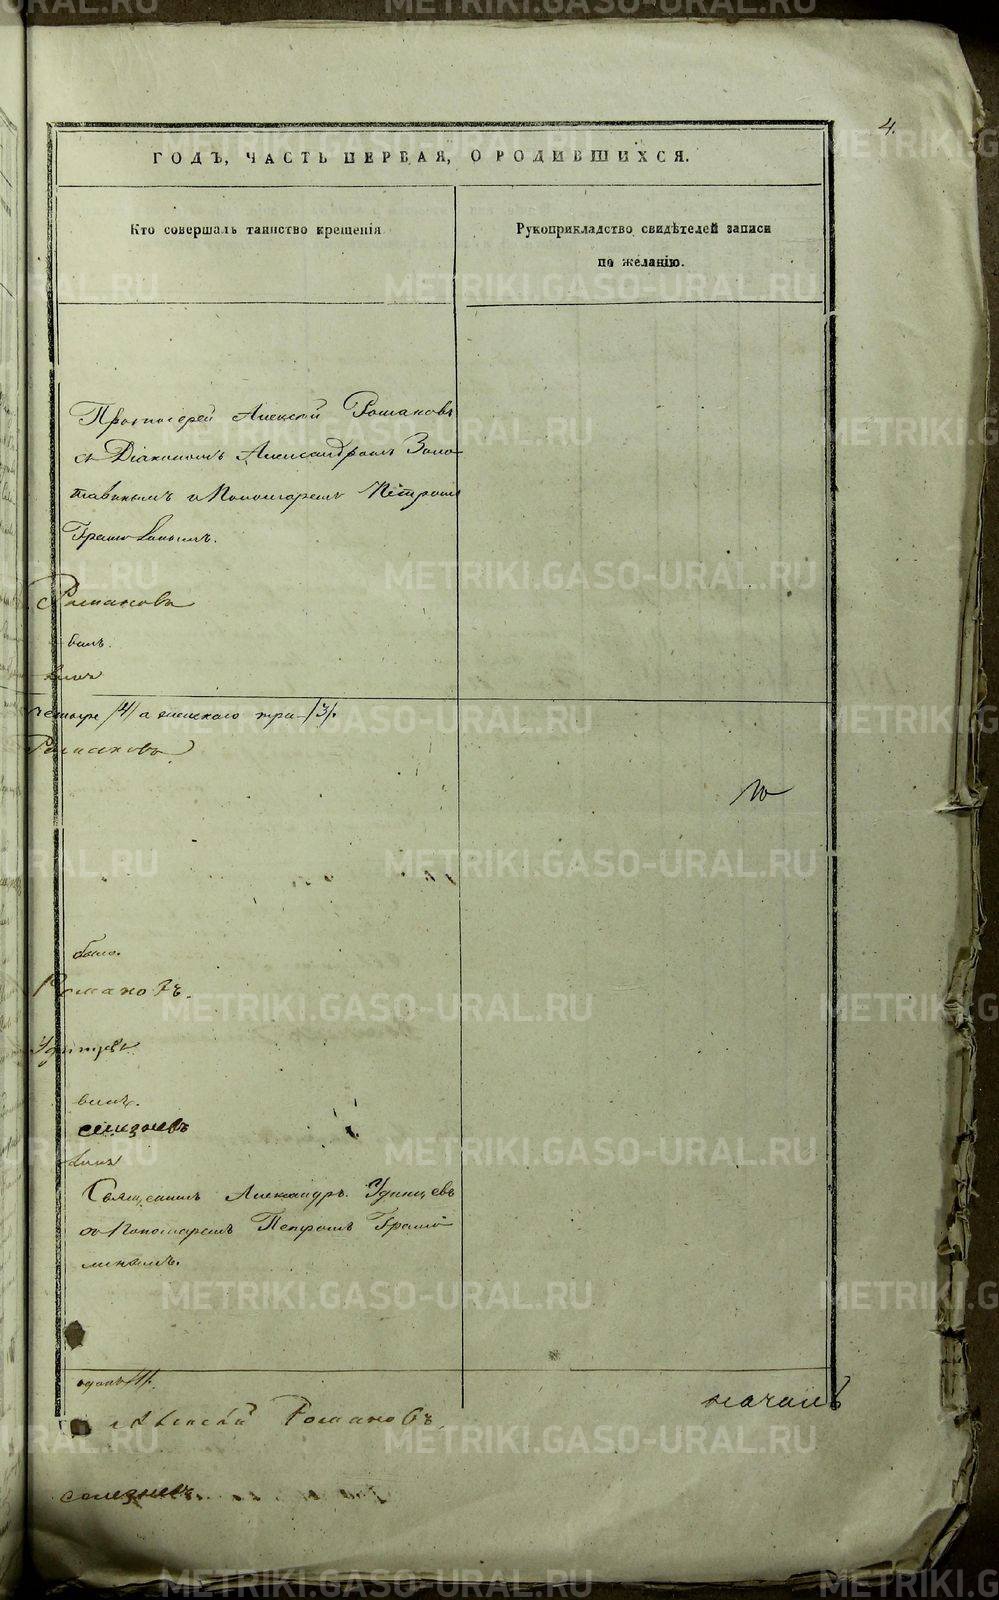 4.
ГОДЪ, ЧАСТЬ ПЕРВАЯ, О РОДИВШИХСЯ.
Кто совершалъ таинство крещенія
Рукоприкладство свидѣтелей записи
по желанію.
Протоіерей Алексій Романовъ
съ Діакономъ Александромъ Золо
тавинымъ и Пономаремъ Петромъ
Романовъ
вымъ.
четыре /4/ а женскаго три /3/.
Романовъ
было.
Романовъ.
Удинцевъ
вымъ.
Селезневъ
Священникъ Александръ Удинцевъ
съ Пономаремъ Петромъ
одинъ /1/.
Алексій Романовъ.
началъ
Селезневъ
METRIKI.GASO-URAL.RU